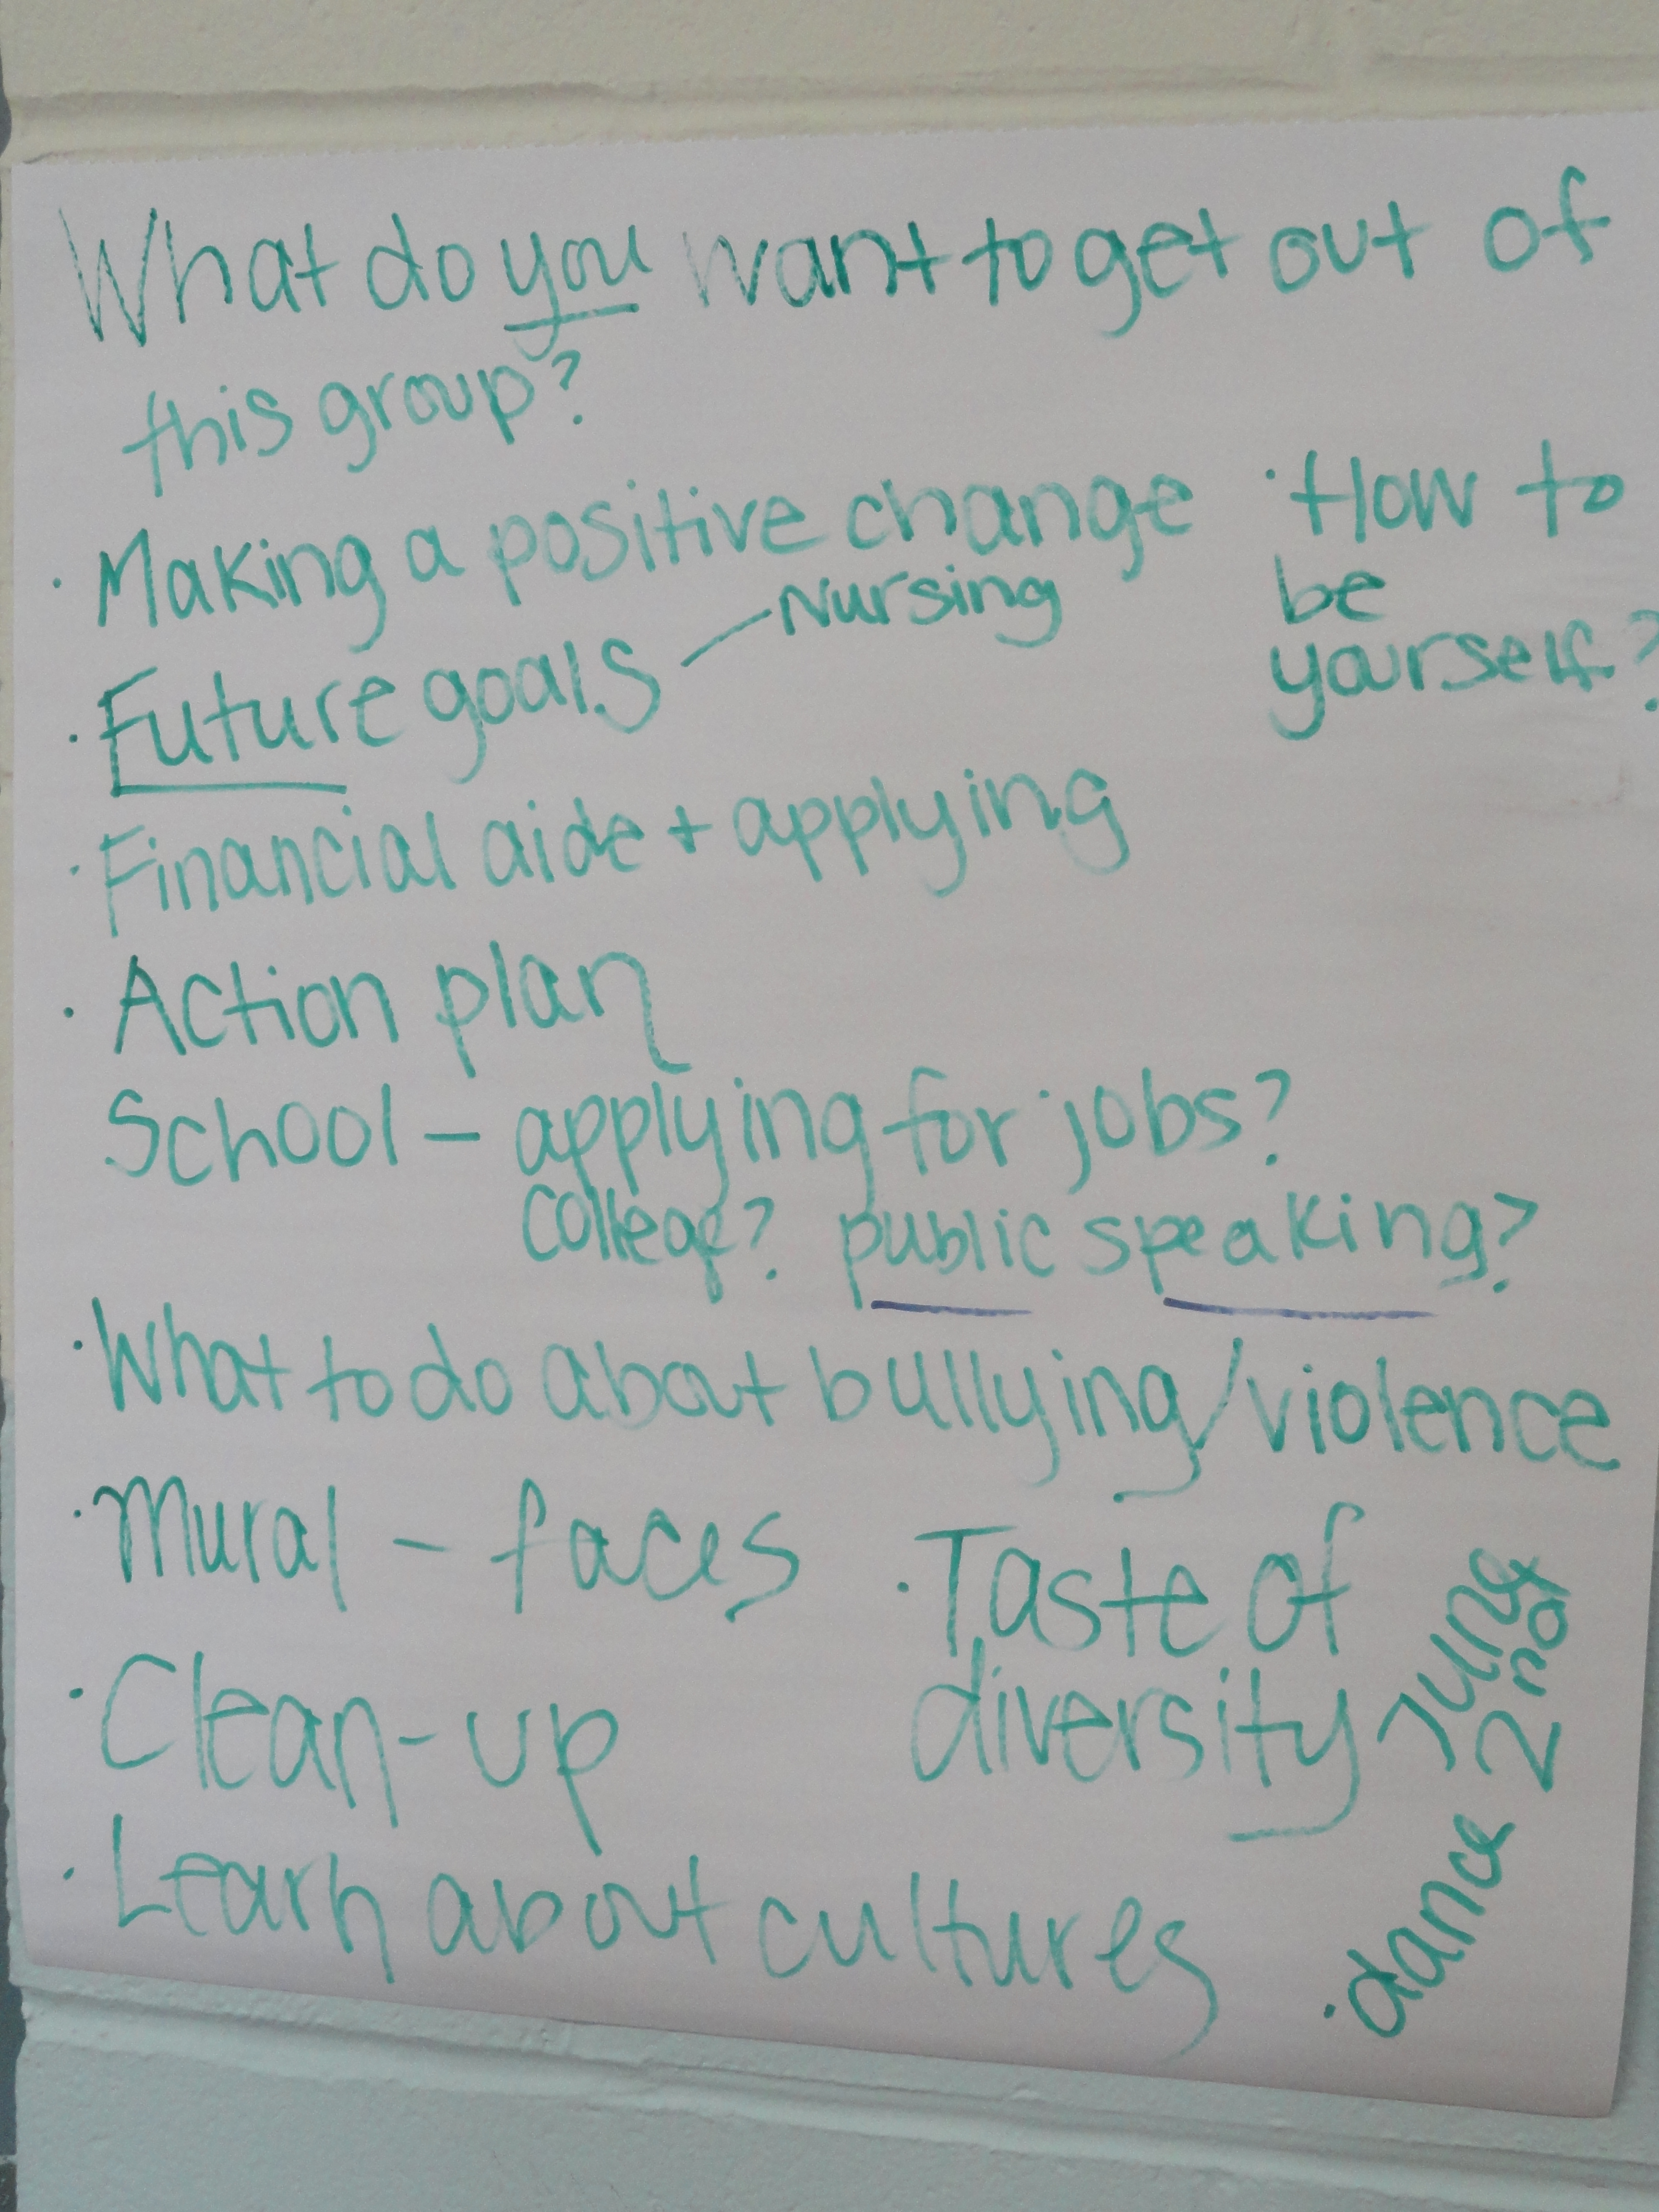 What do you want to get out of
this group?
· Making a positive change
· How to
be
yourself?
· Future goals – Nursing
· Financial aide + applying
· Action plan
School – applying for jobs?
college? public speaking?
· What to do about bullying/violence
· Mural – faces
· Taste of
diversity
June
2nd
· Clean-up
· Learn about cultures
· dance